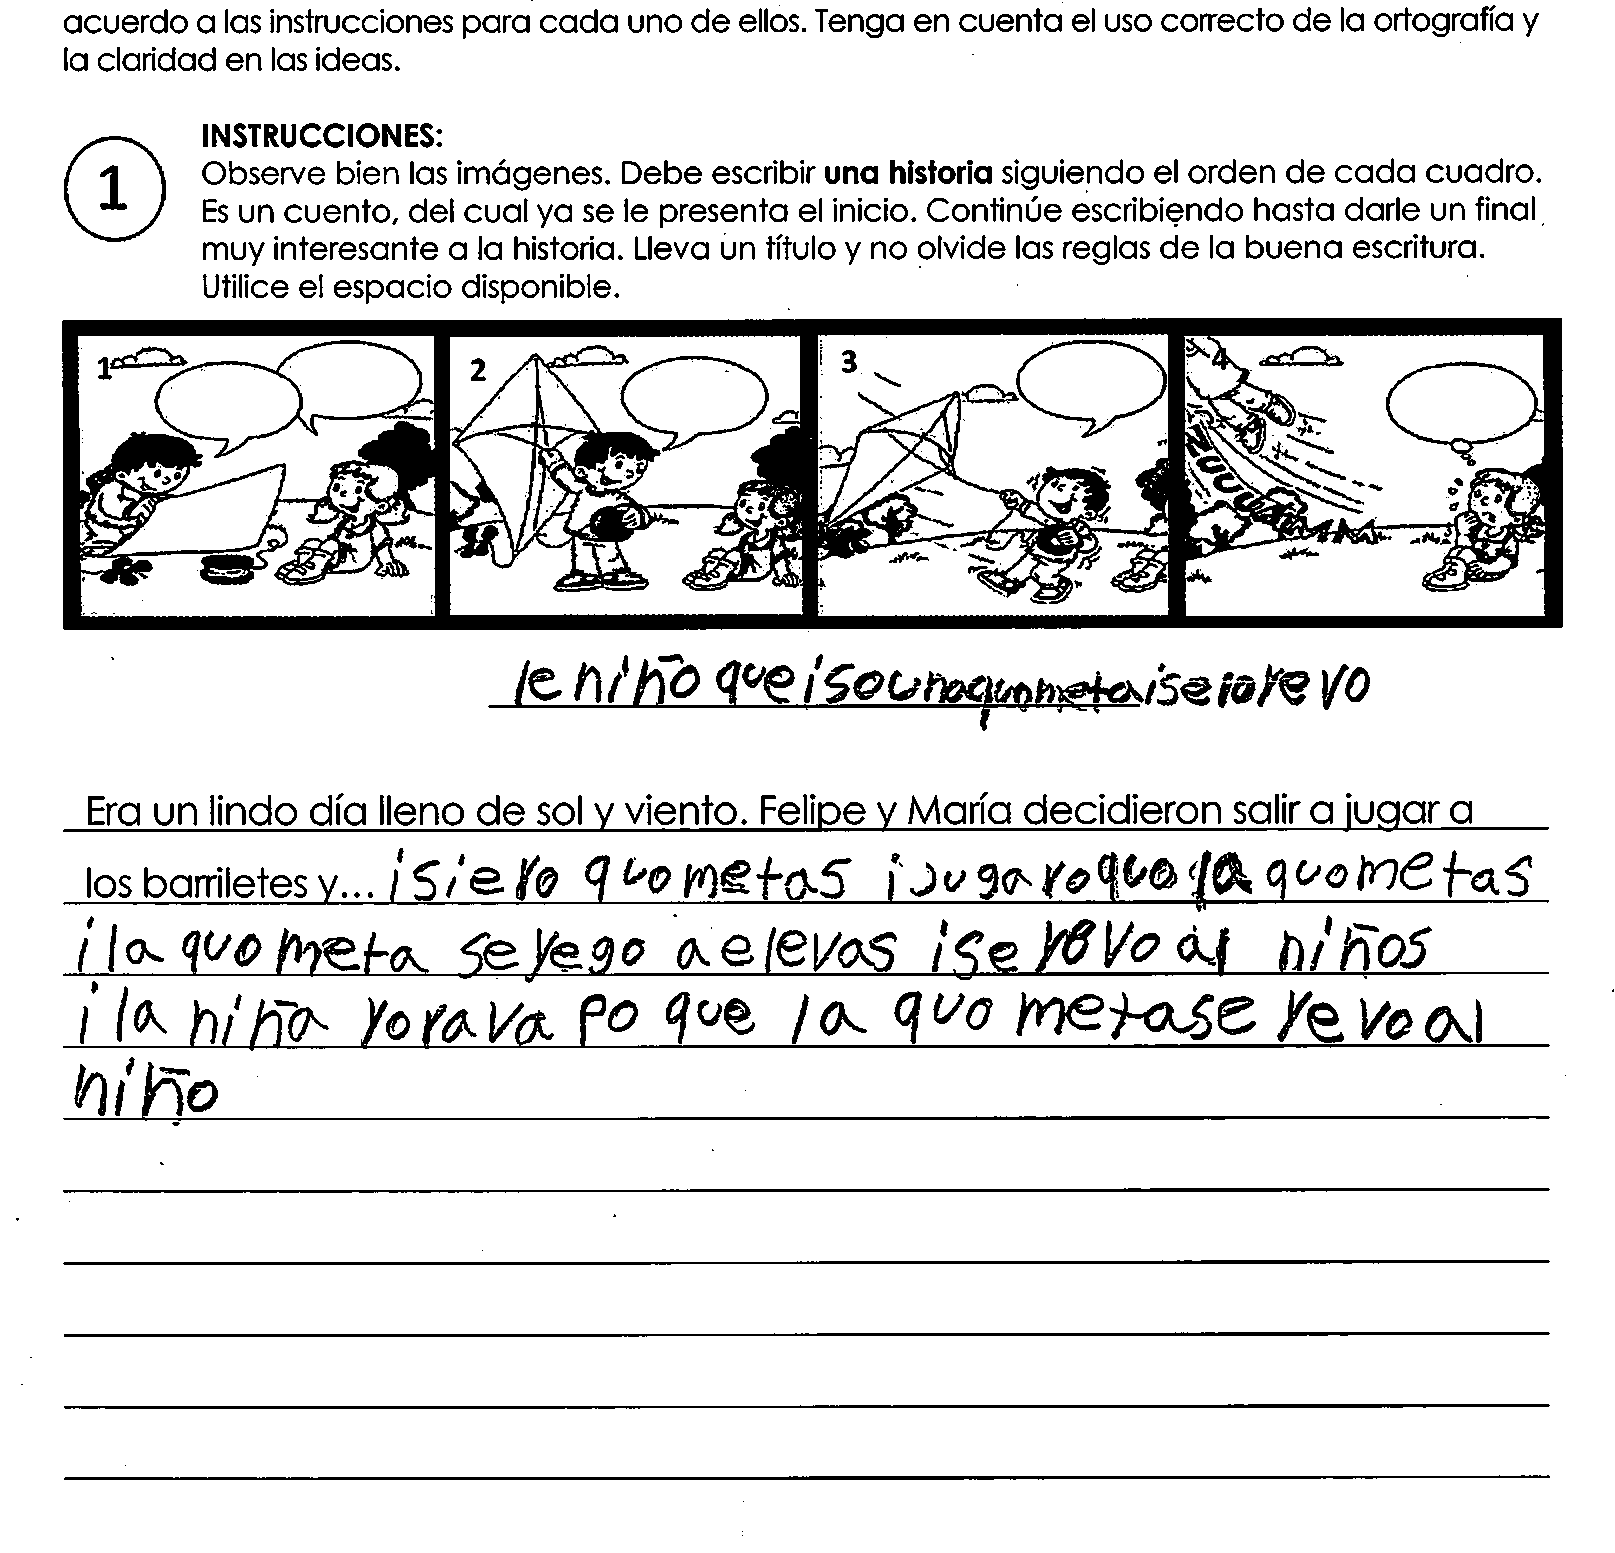 acuerdo a las instrucciones para cada uno de ellos. Tenga en cuenta el uso correcto de la ortografía y
la claridad en las ideas.
1
INSTRUCCIONES:
Observe bien las imágenes. Debe escribir una historia siguiendo el orden de cada cuadro.
Es un cuento, del cual ya se le presenta el inicio. Continúe escribiendo hasta darle un final
muy interesante a la historia. Lleva un título y no olvide las reglas de la buena escritura.
Utilice el espacio disponible.
1 2 3 4
ZUUUU
le niño que iso una
Era un lindo día lleno de sol y viento. Felipe y María decidieron salir a jugar a
los barriletes y... isiero quometas ijugaro quo la quometas
i la quo meta se yego a elevas ise revo al niños
i la niña yorava po que la quo metase revo al
niño